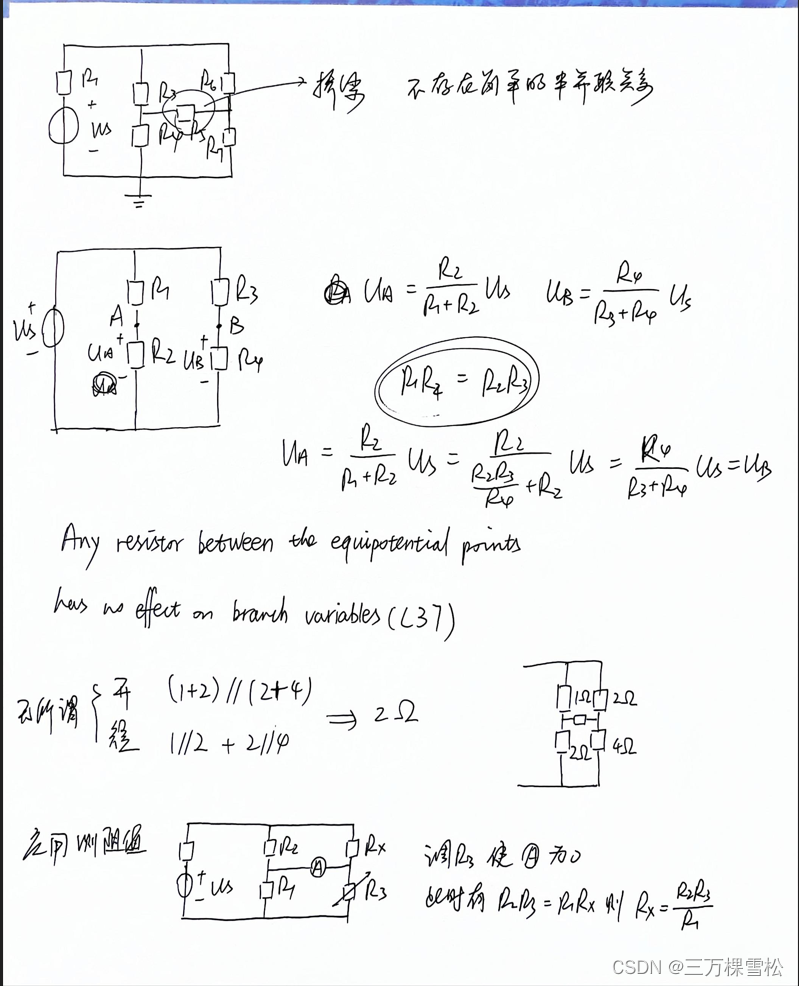 R1
+
Us
-
R3
R4
R5
R6
R7
→ 桥梁 不存在简单的串并联关系
Us
+
-
R1
A
UA
+
-
R2
R3
B
UB
+
-
R4
UA = R2/(R1+R2) Us UB = R4/(R3+R4) Us
R1R4 = R2R3
UA = R2/(R1+R2) Us = R2/(R2R3/R4+R2) Us = R4/(R3+R4) Us = UB
Any resistor between the equipotential points
has no effect on branch variables (L37)
无所谓 { 开 (1+2)//(2+4)
短 1//2 + 2//4
⇒ 2Ω
1Ω 2Ω
2Ω 4Ω
应用 测阻值
+
Us
-
R2
R1
A
Rx
R3
调R3 使Ⓐ为0
此时有 R2R3 = R1Rx 则 Rx = R2R3/R1
CSDN @三万棵雪松